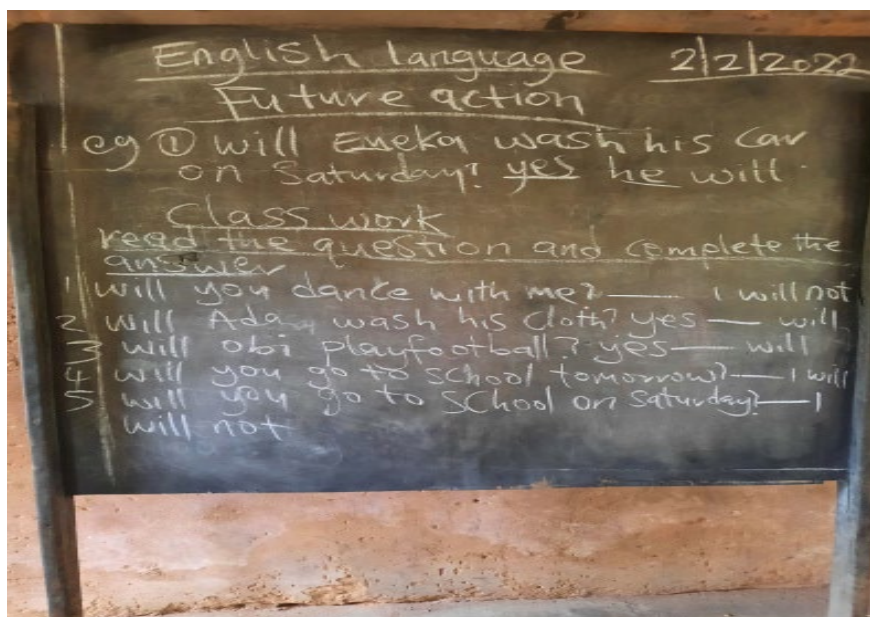 English language 2/2/2022
Future action
eg ① will Emeka wash his car
on Saturday? yes he will
Class work
read the question and complete the
answer
1 will you dance with me? — I will not
2 will Ada wash his cloth? yes — will
3 will obi playfootball? yes — will
4 will you go to school tomorrow? — I will
5 will you go to school on Saturday? — I
will not